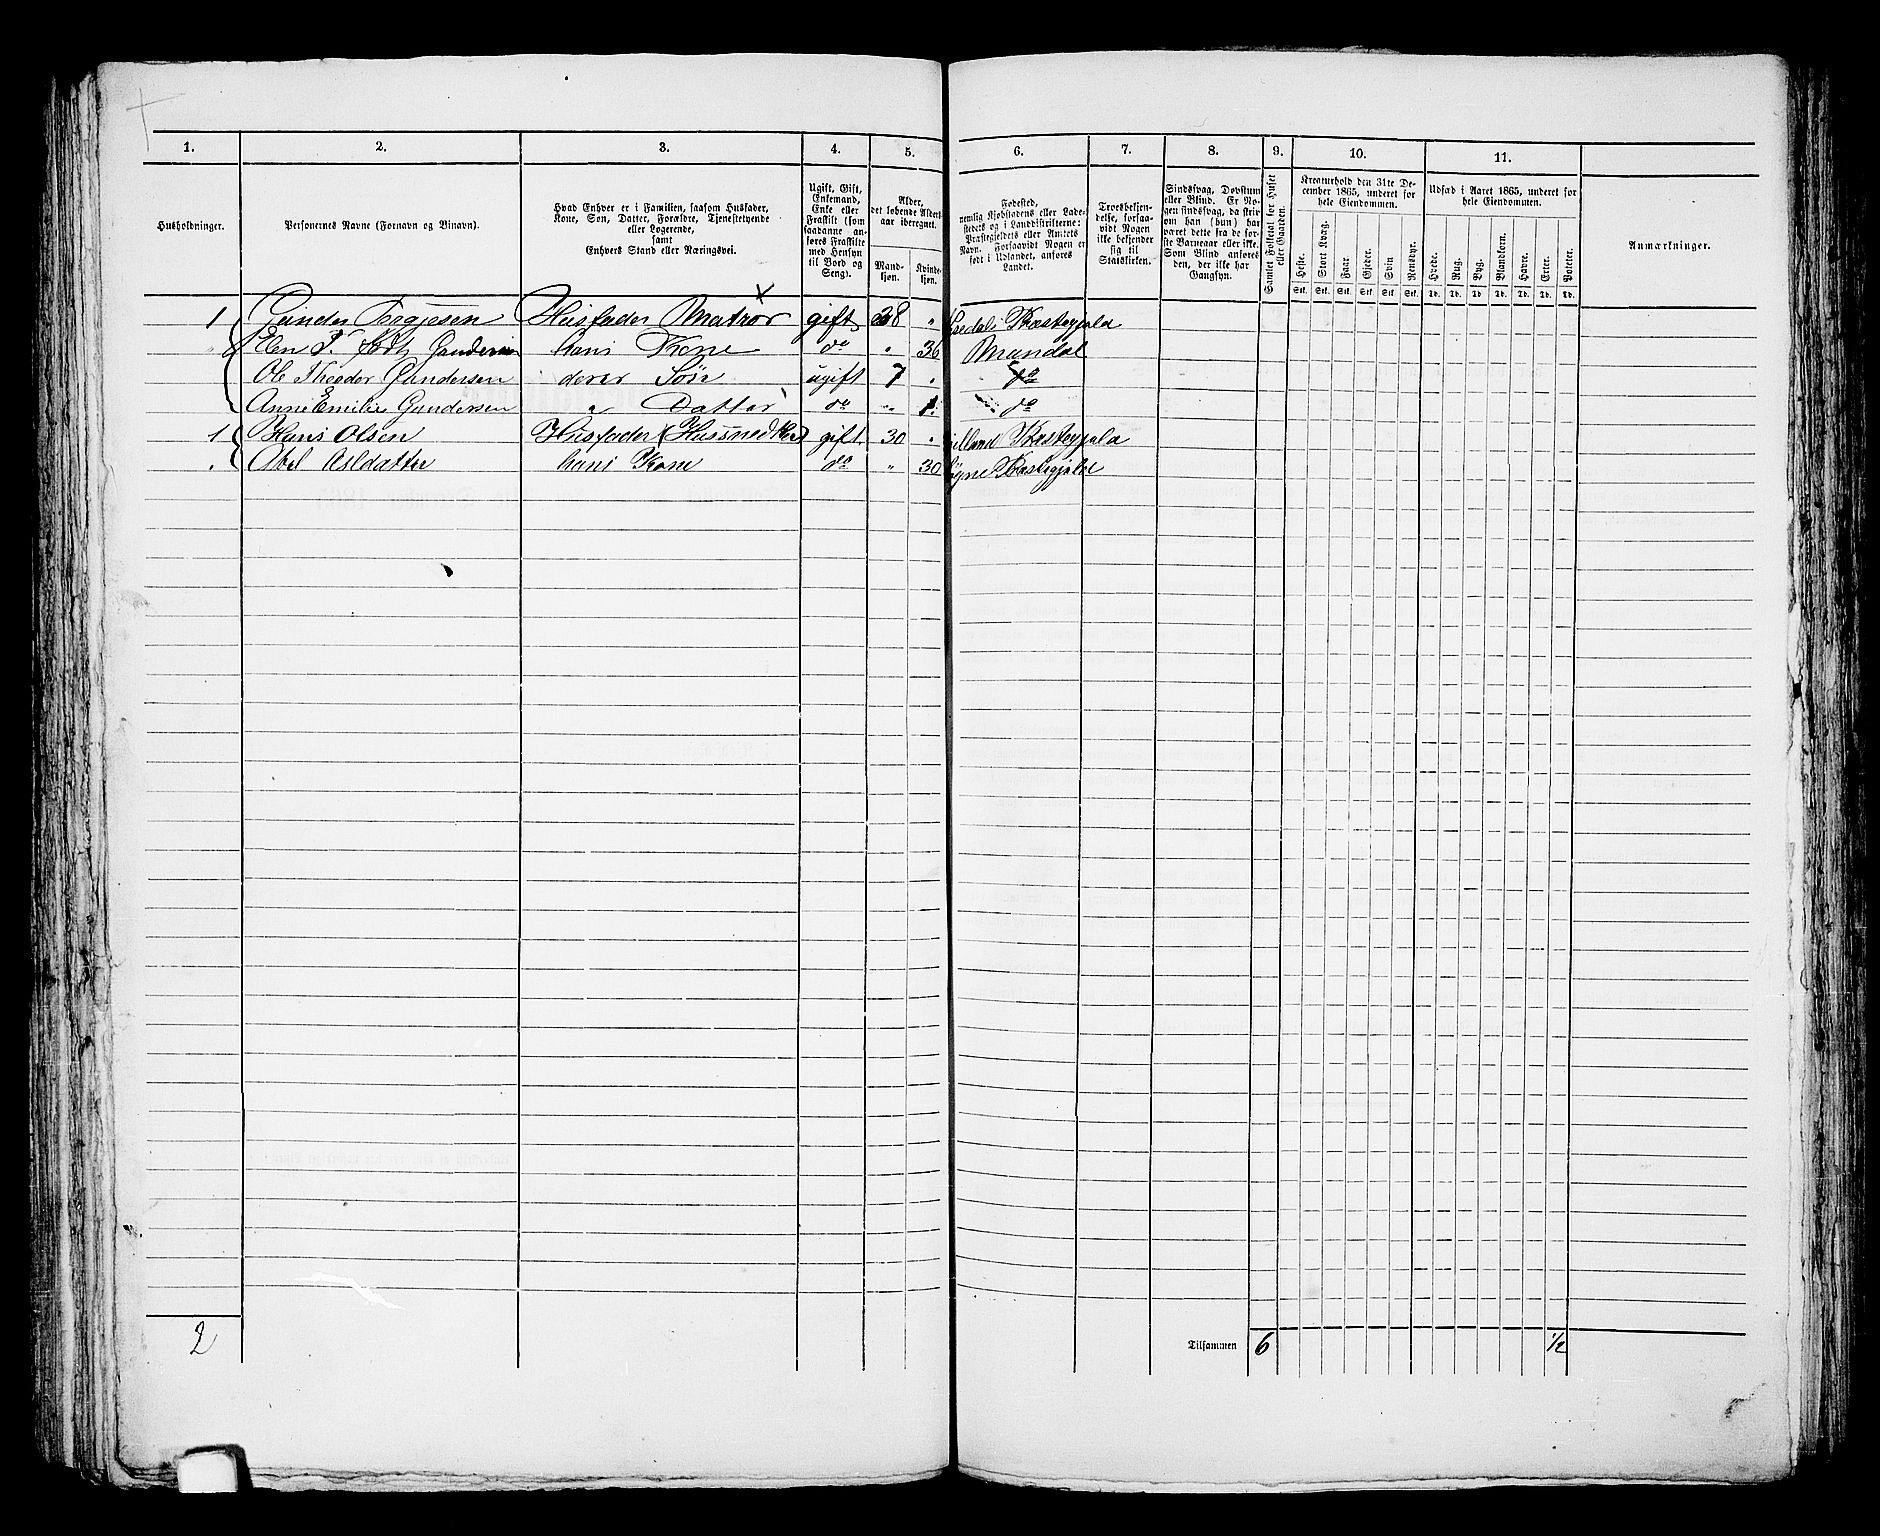 1. 2. 3. 4. 5. 6. 7. 8. 9. 10. 11.
Husholdninger.
Personernes Navne (Fornavn og Binavn).
Hvad Enhver er i Familien, saasom Husfader,
Kone, Søn, Datter, Forældre, Tjenestetyende
eller Logerende,
samt
Enhvers Stand eller Næringsvei.
Ugift, Gift,
Enkemand,
Enke eller
Fraskilt (som
saadanne an-
føres Fraskilte
med Hensyn
til Bord og
Seng).
Alder,
det løbende Alders-
aar iberegnet.
Mand-
kjøn.
Kvinde-
kjøn.
Fødested,
nemlig Kjøbstadens eller Lade-
stedets og i Landdistrikterne:
Præstegjeldets eller Amtets
Navn. Forsaavidt Nogen er
født i Udlandet, anføres
Landet.
Troesbekjen-
delse, forsaa-
vidt Nogen
ikke bekjender
sig til
Statskirken.
Sindssvag, Døvstum
eller Blind. Er No-
gen sindssvag, da skriv
om han (hun) har
været dette fra de før-
ste Barneaar eller ikke.
Som Blind anføres
den, der ikke har
Gangsyn.
Gamlet Folketal for Huset
eller Gaarden.
Kreaturhold den 31te De-
cember 1865, underet for
hele Eiendommen.
Heste. Stort Kvæg. Faar. Gjeder. Svin Rensdyr.
Stk. Stk. Stk. Stk. Stk. Stk.
Udsæd i Aaret 1865, underet for
hele Eiendommen.
Hvede. Rug. Byg. Blandkorn. Havre. Erter. Poteter.
Td. Td. Td. Td. Td. Td. Td.
Anmærkninger.
1 Gunder Tergjesen Husfader Matros gift 38 " Præstegjeld
" Elen T. født Gundersen hans Kone do " 36 Mandal
Ole Theodor Gundersen deres Søn ugift 7 " do
Anne Emilie Gundersen " Datter do " 1 do
1 Hans Olsen Husfader (Hussnedker) gift 30 " Præstegjeld
" Abel Asldatter hans Kone do " 30 Søgne Præstegjeld
2 Tilsammen 6 1/2